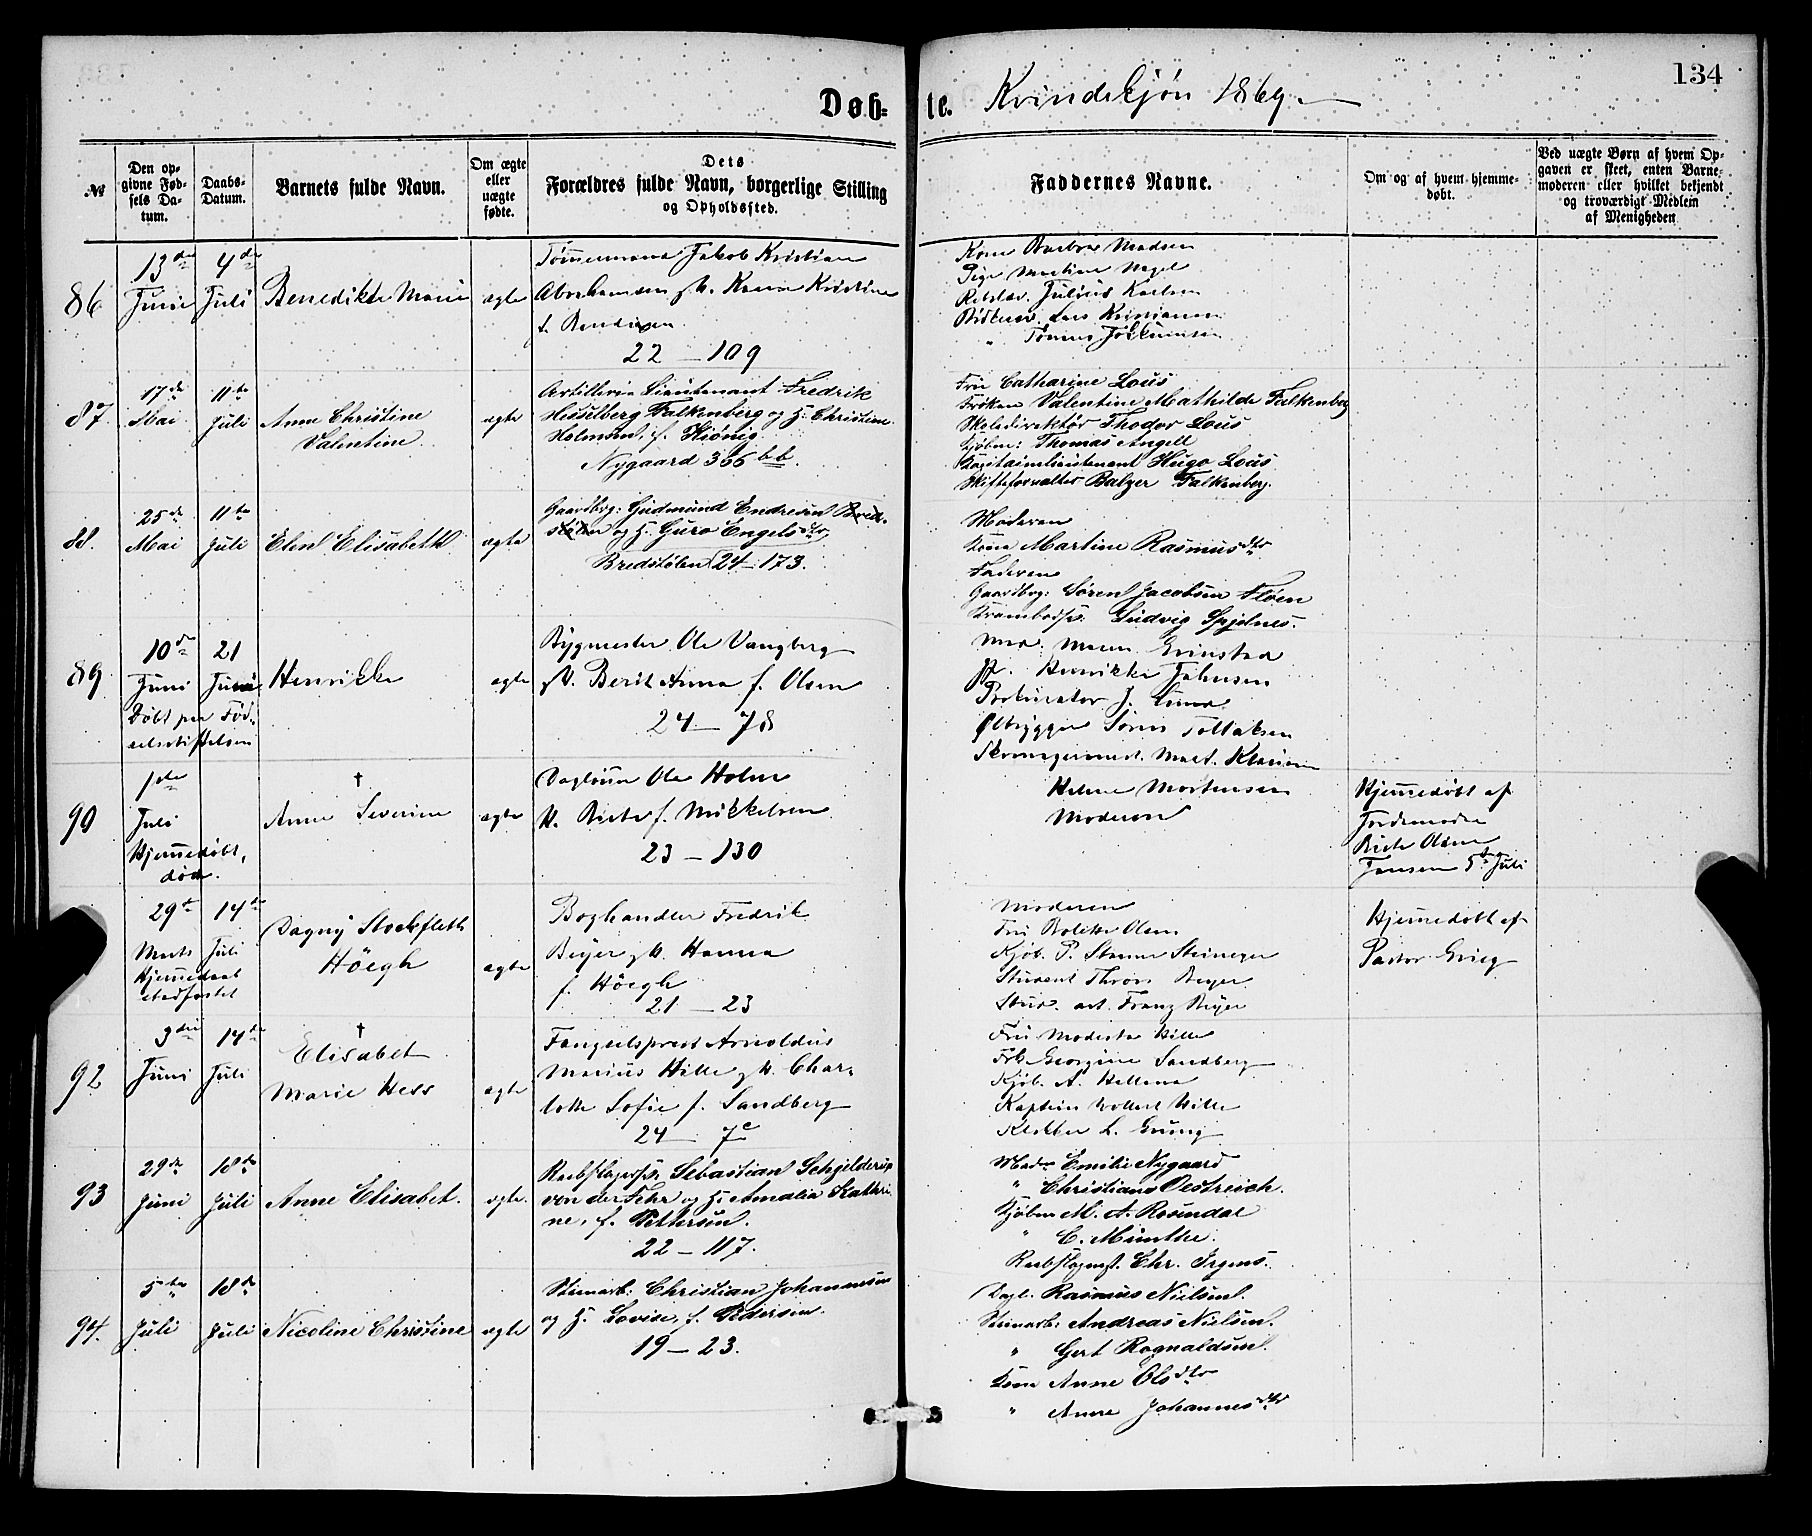 134
Døb-
te. Kvindekjøn 1869.
№
Den op-
givne Fød-
sels Da-
tum.
Daabs-
Datum.
Barnets fulde Navn.
Om ægte
eller
uægte
fødte.
Dets
Forældres fulde Navn, borgerlige Stilling
og Opholdssted.
Faddernes Navne.
Om og af hvem hjemme-
døbt.
Ved uægte Børn af hvem Op-
gaven er skeet, enten Barne-
moderen eller hvilket bekjendt
og troværdigt Medlem
af Menigheden
86
13de
Juni
4de
Juli
Benedikte Marie
ægte
Tömmermand Jakob Kristian
Abrahamsen & H. Karen Kristine
f. Bendixen
22 – 109
Kone Barbra Madsen
Pige Martine Nagel
Julius Karlsen
Lars Kristiansen
" Tönnes
87.
17de
Mai
11te
Juli
Anne Christine
Valentine
ægte
Artilleri Lieutenant Fredrik
Hesselberg Falkenberg og H. Christine
f. Kiönig.
Nygaard 366 bb.
Fru Catharine Lous
Frøken Valentine Mathilde Falkenberg
Skoledirektør Thodor Lous
Kjøbm: Thomas Angell
Kapitainlieutenant Hugo Lous
Skifteforvalter Balzer Falkenberg.
88.
25de
Mai
11te
Juli
Elen Elisabeth
ægte
Gaardbrg: Gudmund Endresen Bred-
stölen og H. Guro Engelsdtr,
Bredstölen 24–173.
Moderen
Kone Martine Rasmusdtr
Faderen
Gaardbrg: Søren Jacobsen Fløen
Ludvig Spjelnes.
89
10de
Juni
21
Juni
Døbt paa Fød-
selsstiftelsen
Henrikke
ægte
Bygmester Ole Vangberg
& H. Berit Anna f. Olsen
24 – 78
Mad. Maren Grimstad
Henrikke Johnsen
Prokurator J. Lund
Ølbrygger Sören Tollaksen
90
1ste
Juli
Hjemmedöbt,
död.
†
Anne Severine
ægte
Daglönn Ole Holm
H. Birte f. Mikkelsen
23 – 130
Helene Mortensen
Moderen
Hjemmedöbt af
Jordemoder
Birte Olsen
Jansen 5te Juli
29de
Marts
14de
Juli
Hjemmedaab
stadfæstet
Dagny Stockfleth
Höegh
ægte
Boghandler Fredrik
Beyer & H. Hanna
f. Höegh
21 – 23
Moderen
Fru Bolette Olsen
Kjöb. P. Stamer Steineger
Student Beyer
Stud. art. Franz Beyer
Hjemmedöbt af
Pastor Grieg
92
3die
Juni
14de
Juli
†
Elisabet
Marie Hess
ægte
Fængselsprest Arnoldus
Marius Hille & H. Char-
lotte Sofie f. Sandberg
24 – 7c
Fru Modesta Hille
Frk. Georgine Sandberg
Kjöb. A. Hellem
Kaptein Hille
Klokker L. Grung
93
29de
Juni
18de
Juli
Anne Elisabet.
ægte.
Rebslagersv. Sebastian Schjelderup
von der Fehr og H. Amalia Kathri-
ne, f. Pettersen.
22 – 117.
Mad. Emilie Nygaard
" Christiane Oestreich.
Kjøbm M. A. Rosendal
" C. Münthe.
Rebslagerst. Chr. Irgens.
94.
5te
Juli
18de
Juli
Nicoline Christine
ægte
Stenarb: Christian Johannesen
og H. Lovise, f. Pedersen.
19 – 23.
Dagl. Rasmus Nielsen.
Stenarb: Andreas Nielsen.
" Gert Rognaldsen.
Kone Anne Olsdtr
" Anne Johannesdtr